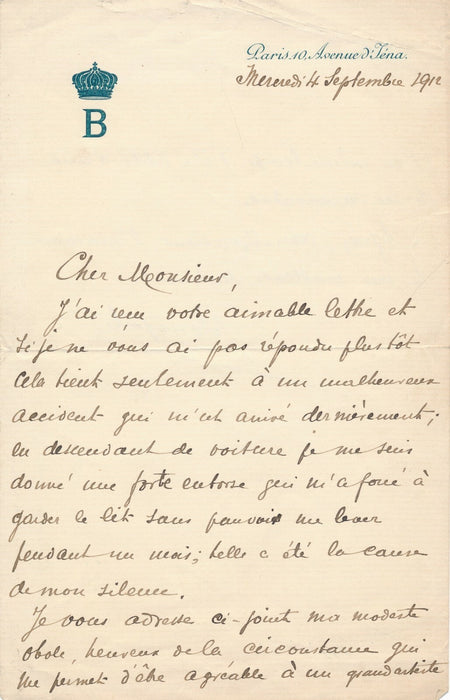 Paris.10, Avenue d'Iéna.
Mercredi 4 Septembre 1912
B
Cher Monsieur,
J'ai reçu votre aimable lettre et
si je ne vous ai pas répondu plus tôt
cela tient seulement à un malheureux
accident qui m'est arrivé dernièrement;
en descendant de voiture je me suis
donné une forte entorse qui m'a forcé à
garder le lit sans pouvoir me lever
pendant un mois; telle a été la cause
de mon silence.
Je vous adresse ci-joint ma modeste
obole, heureux de la circonstance qui
me permet d'être agréable à un grand artiste